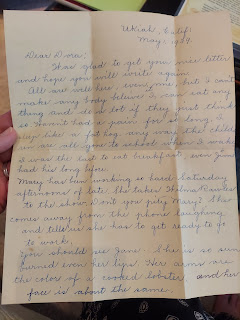 Ukiah, Calif.
May, 1934.
Dear Dora;
I was glad to get your nice letter
and hope you will write again.
All are well here, even me, but I can't
make any body believe I can eat any
thing and do a lot if they just think
so. Haven't had a pain for so long. I
like a fat hog any way the chil
are all you to school when I wake.
I was the last to eat breakfast, even Jim
had his long before.
Mary has been working so hard Saturday
afternoons of late. She takes Thelma
to the show. Don't you pity Mary? She
comes away from the phone laughing
and tells us she has to get ready to go
to work.
You should see Jane. She is so sun
burned even her lips. Her arms are
the color of a cooked lobster and her
face is about the same.